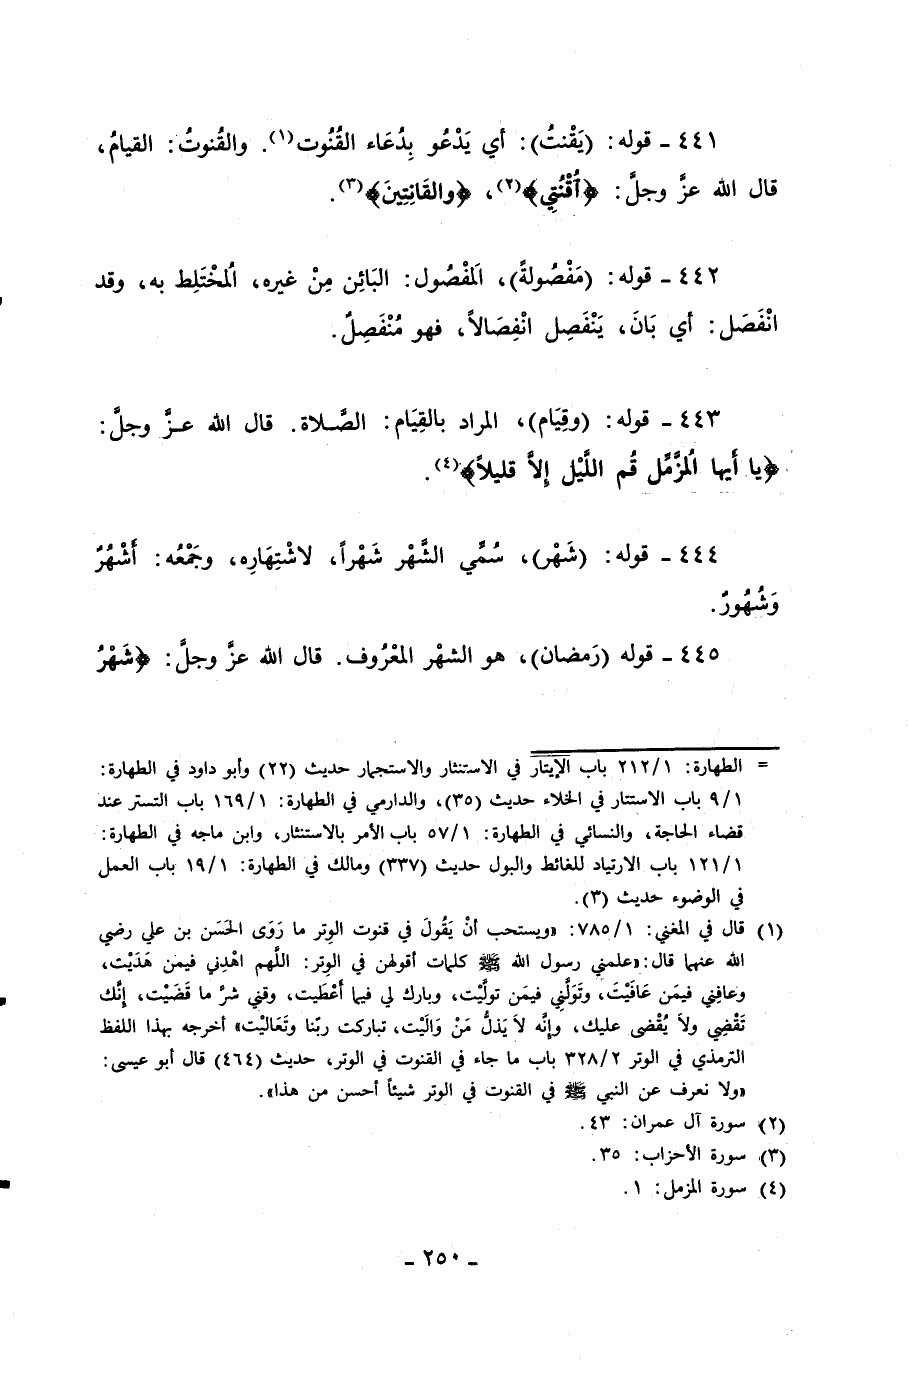 ٤٤١ ـ قوله: (يَقْنتُ): أي يَدْعُو بِدُعَاء القُنُوت(١). والقُنوتُ: القيامُ،
قال الله عزَّ وجلَّ: ﴿اُقْنُتِي﴾(٢)، ﴿والقَانِتِينَ﴾(٣).
٤٤٢ ـ قوله: (مَفْصُولةً)، اَلمفْصُول: البَائِن مِنْ غيره، اُلمخْتَلِط به، وقد
انْفَصَل: أي بَانَ، يَنْفَصِل انْفِصَالاً، فهو مُنْفَصِلٌ.
٤٤٣ ـ قوله: (وقِيَام)، المراد بالقِيَام: الصَّلاة. قال الله عزَّ وجلَّ:
﴿يا أَيها اُلمزَّمِّل قُم اللَّيْل إِلاَّ قليلاً﴾(٤).
٤٤٤ ـ قوله: (شَهْر)، سُمِّي الشَّهْر شَهْراً، لاشْتِهَارِه، وجَمْعُه: أَشْهُرٌ
وَشُهُورٌ.
٤٤٥ ـ قوله (رَمضان)، هو الشهْر المعْرُوف. قال الله عزَّ وجلَّ: ﴿شَهْرُ
= الطهارة: ٢١٢/١ باب الإيتار في الاستنثار والاستجمار حديث (٢٢) وأبو داود في الطهارة:
٩/١ باب الاستتار في الخلاء حديث (٣٥)، والدارمي في الطهارة: ١٦٩/١ باب التستر عند
قضاء الحاجة، والنسائي في الطهارة: ٥٧/١ باب الأمر بالاستنثار، وابن ماجه في الطهارة:
١٢١/١ باب الارتياد للغائط والبول حديث (٣٣٧) ومالك في الطهارة: ١٩/١ باب العمل
في الوضوء حديث (٣).
(١) قال في المغني: ٧٨٥/١: «ويستحب أنْ يَقُولَ في قنوت الوِتر ما رَوَى الحَسَن بن علي رضي
الله عنهما قال: «علمني رسول الله ﷺ كلمات أقولهن في الوِتر: اللَّهم اهْدِني فيمن هَدَيْت،
وعافِني فيمَن عَافَيْتَ، وتَوَلَّني فيمَن تولَّيْت، وبارك لي فيما أَعْطَيت، وقني شرَّ ما قَضَيْت، إِنَّك
تَقْضِي ولاَ يُقْضى عليك، وإِنَّه لاَ يَذلُّ مَنْ وَالَيْت، تباركت ربّنا وتَعَاليْت» أخرجه بهذا اللفظ
الترمذي في الوتر ٣٢٨/٢ باب ما جاء في القنوت في الوتر، حديث (٤٦٤) قال أبو عيسى:
«ولا نعرف عن النبي ﷺ في القنوت في الوتر شيئاً أحسن من هذا».
(٢) سورة آل عمران: ٤٣.
(٣) سورة الأحزاب: ٣٥.
(٤) سورة المزمل: ١.
ـ ٢٥٠ ـ